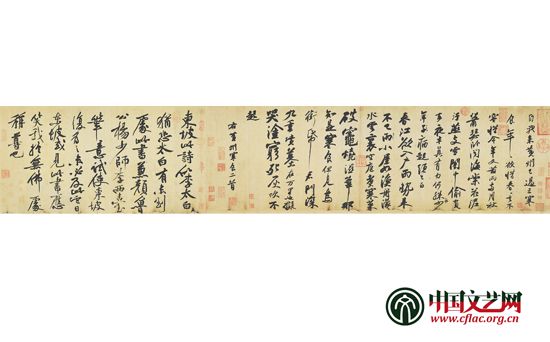 自我來黃州已過三寒
食年年欲惜春春去不
容惜今年又苦雨兩月秋
蕭瑟臥聞海棠花泥
汙燕支雪闇中偷負
去夜半真有力何殊少
年子病起頭已白
春江欲入戶雨勢來
不已小屋如漁舟濛濛
水雲裏空庖煮寒菜
破竈燒濕葦那
知是寒食但見烏
銜帋君門深
九重墳墓在萬里也擬
哭塗窮死灰吹不
起
右黃州寒食二首
東坡此詩似李太白
猶恐太白有未到
處此書兼顏魯
公楊少師李西臺
筆意試使東坡
復為之未必及此它日
東坡或見此書應
笑我於無佛處
稱尊也
中国文艺网
www.cflac.org.cn